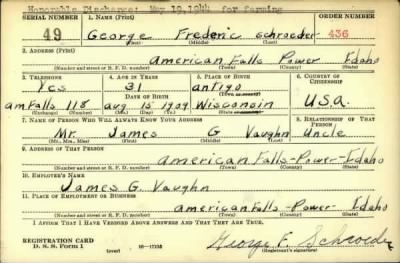 Honorable Discharge: May 19, 1944 for farming
SERIAL NUMBER 1. NAME (Print) ORDER NUMBER
49 George Frederic Schroeder 436
(First) (Middle) (Last)
2. ADDRESS (Print)
American Falls Power Idaho
(Number and street or R. F. D. number) (Town) (County) (State)
3. TELEPHONE 4. AGE IN YEARS 5. PLACE OF BIRTH 6. COUNTRY OF CITIZENSHIP
Yes 31 Antigo
DATE OF BIRTH (Town or county)
Am Falls 118 Aug 15 1909 Wisconsin U.S.A.
(Exchange) (Number) (Mo.) (Day) (Yr.) (State or country)
7. NAME OF PERSON WHO WILL ALWAYS KNOW YOUR ADDRESS 8. RELATIONSHIP OF THAT PERSON
Mr. James G Vaughn Uncle
(Mr., Mrs., Miss) (First) (Middle) (Last)
9. ADDRESS OF THAT PERSON
American Falls - Power - Idaho
(Number and street or R. F. D. number) (Town) (County) (State)
10. EMPLOYER'S NAME
James G. Vaughn
11. PLACE OF EMPLOYMENT OR BUSINESS
American Falls - Power - Idaho
(Number and street or R. F. D. number) (Town) (County) (State)
I AFFIRM THAT I HAVE VERIFIED ABOVE ANSWERS AND THAT THEY ARE TRUE.
REGISTRATION CARD
D. S. S. Form 1 (over) 16-17105 George F. Schroeder
(Registrant's signature)